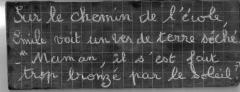 Sur le chemin de l'école,
Emile voit un ver de terre séché
"Maman, il s'est fait
trop bronzé par le soleil?